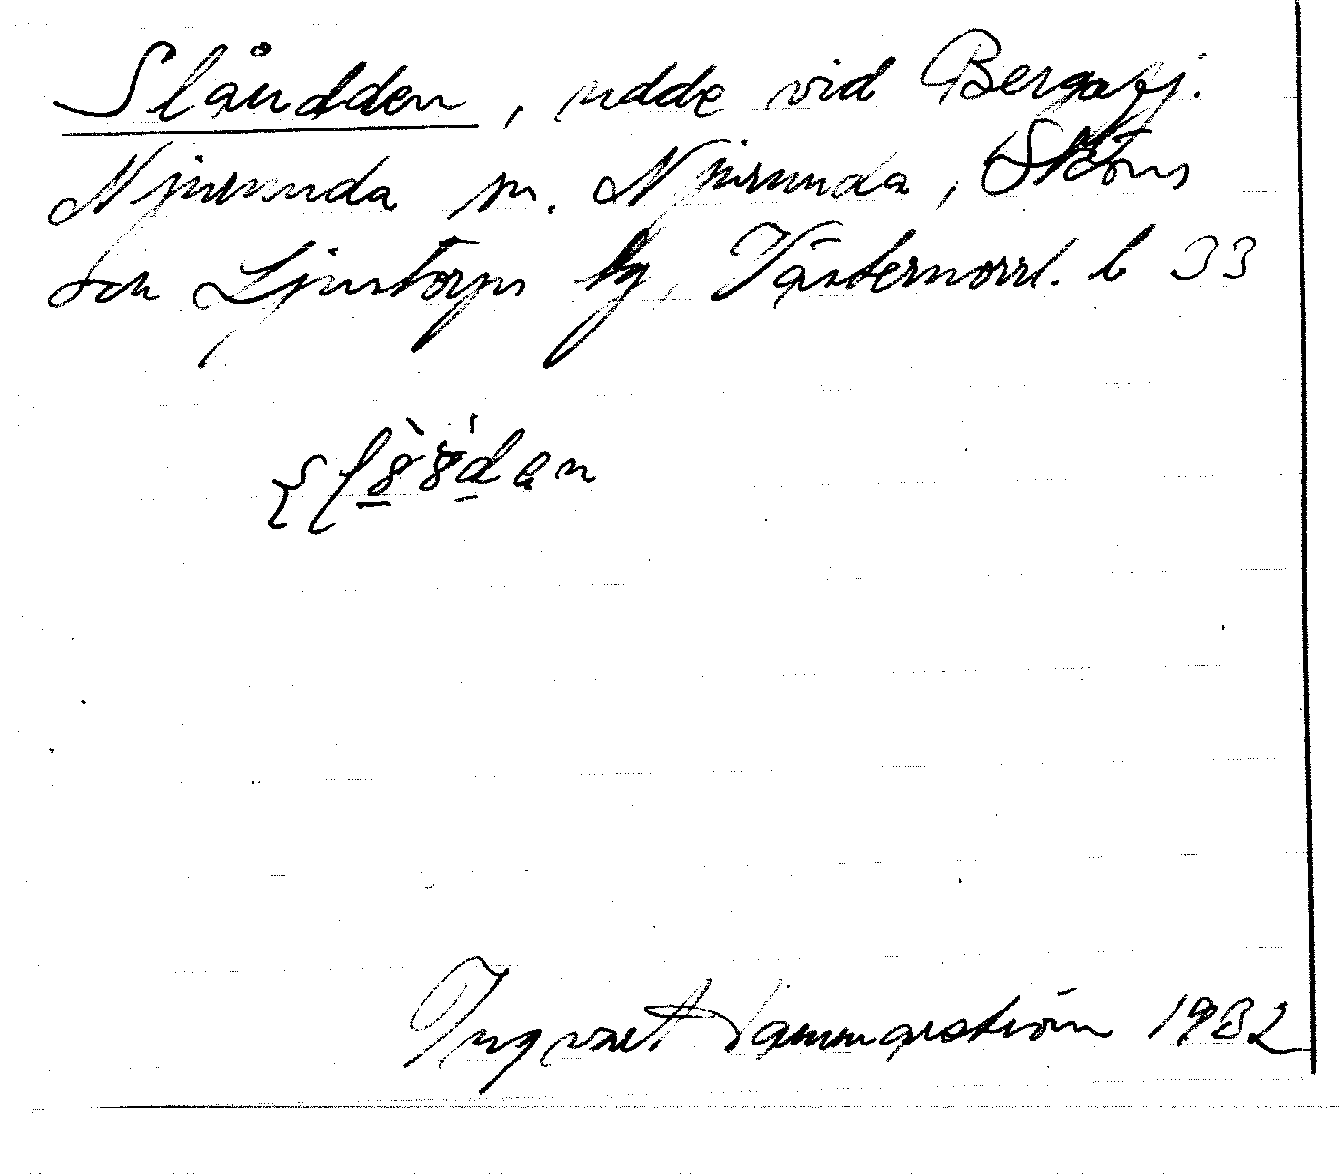 Slåudden, udde vid Bergafj.
Njurunda sn. Njurunda, Sköns
och Ljustorps tg, Västernorrl. l 33
Ingvart Hammarström 1932